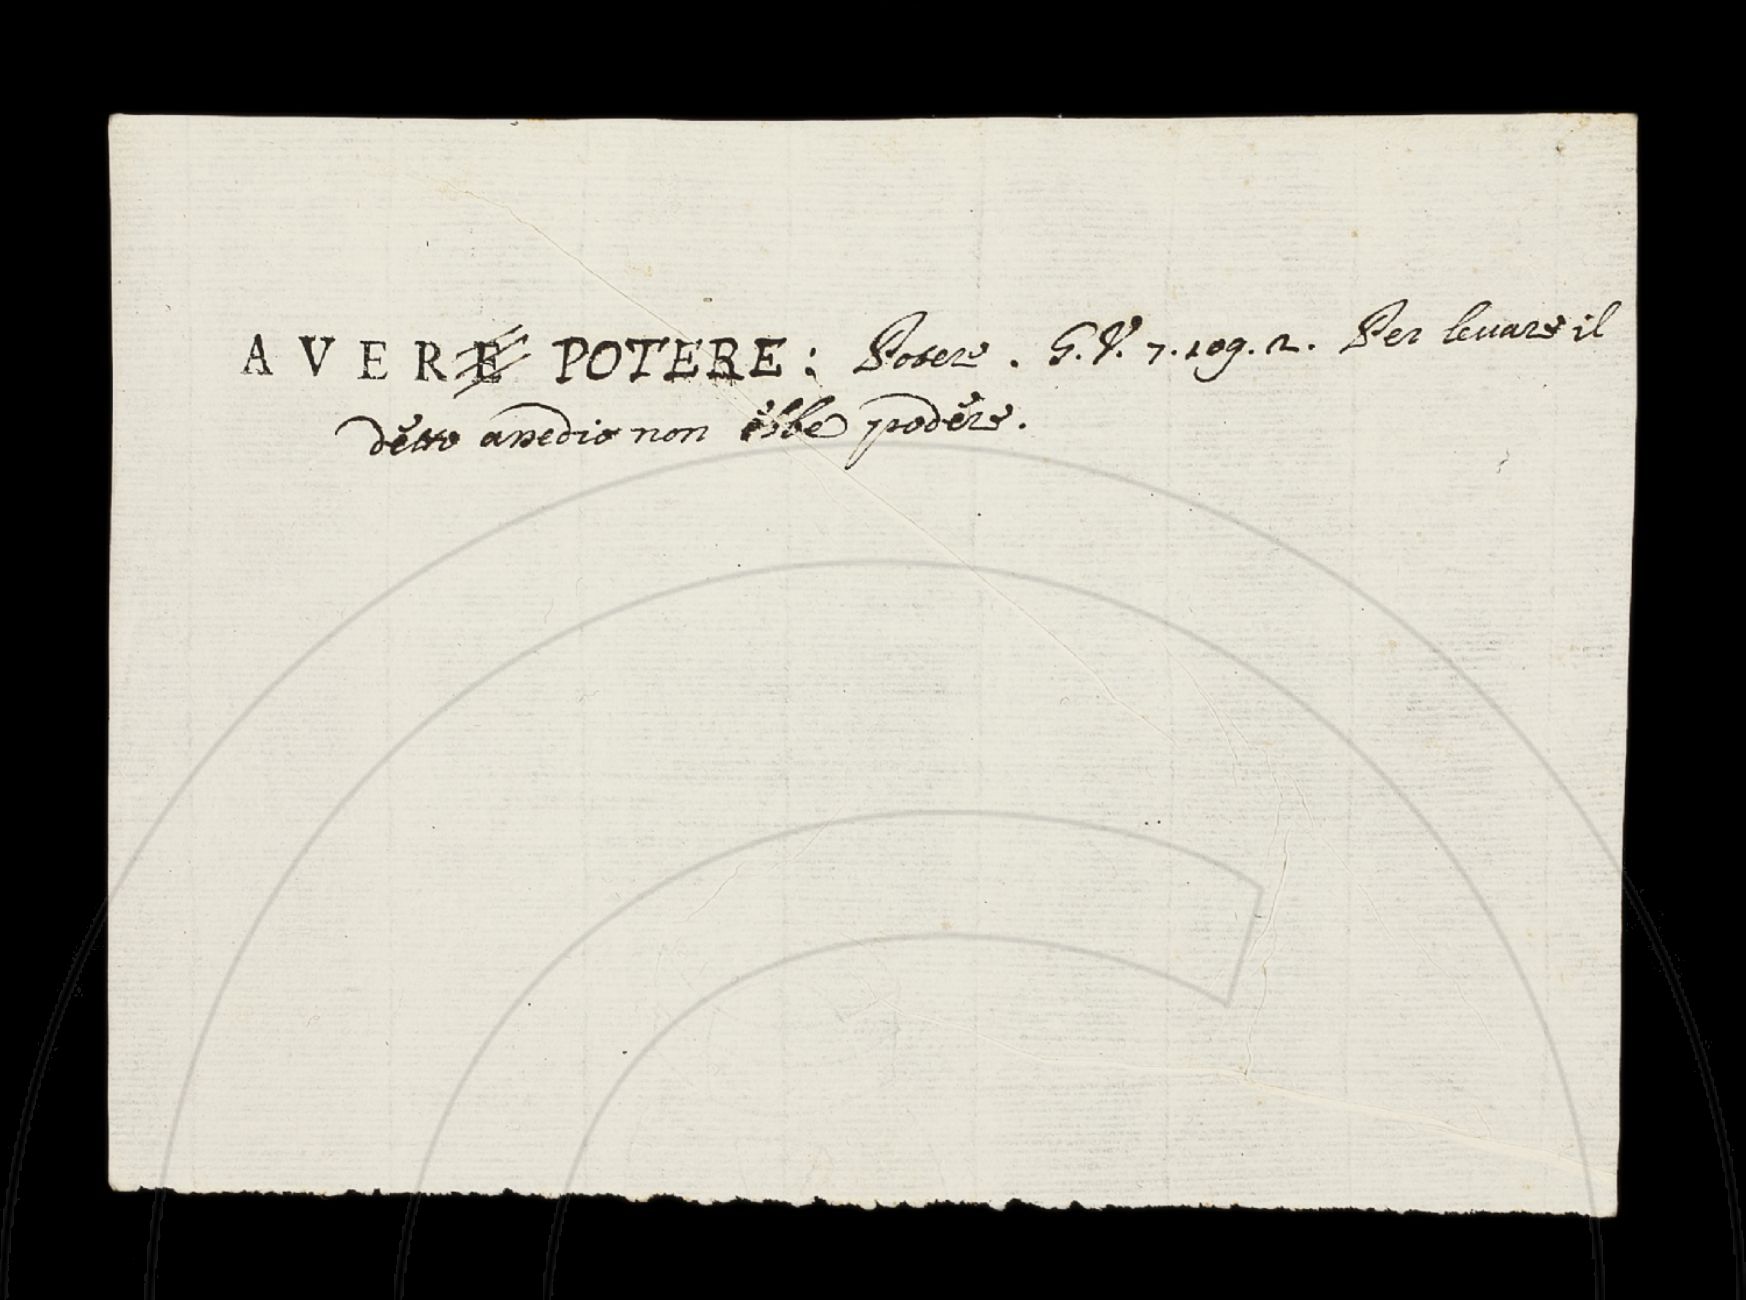 AVERE POTERE: Potere. G.V. 7. 109. 2. Per levare il
detto assedio non ebbe podere.